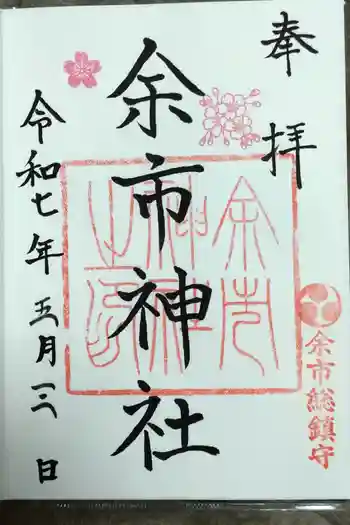 奉拝
余市総鎮守
余市神社
余市
神社
之印
令和七年五月三日